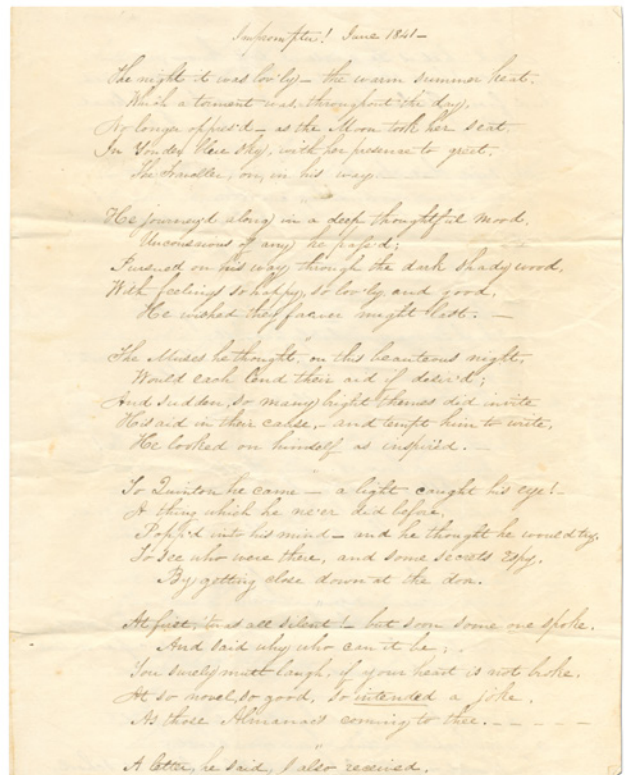 Impromptu! June 1841-
The night it was lov'ly - the warm summer heat.
Which a torment was, throughout the day,
No longer oppress'd - as the Moon took her seat,
In Yonder blue sky, with her presence to greet,
The Traveller, on, in his way.
He journey'd along in a deep thoughtful mood,
Unconscious of any he pass'd;
Pursued on his way, through the dark shady wood,
With feelings so happy, so lov'ly, and good,
He wished they forever might last. -
The Muses he thought, on this beauteous night,
Would each lend their aid if desir'd;
And sudden, so many bright themes did invite
His aid in their cause, - and tempt him to write,
He looked on himself as inspired. -
To Quinton he came - a light caught his eye! -
A thing which he ne'er did before,
Popp'd into his mind - and he thought he would try,
To see who were there, and some secrets espy,
By getting close down at the door.
At first, 'twas all silent! - but soon some one spoke.
And said why who can it be;
You surely must laugh, if your heart is not broke.
At so novel, so good, so intended a joke,
As those Almanacs coming to thee. - - - - -
A letter, he said, I also received,